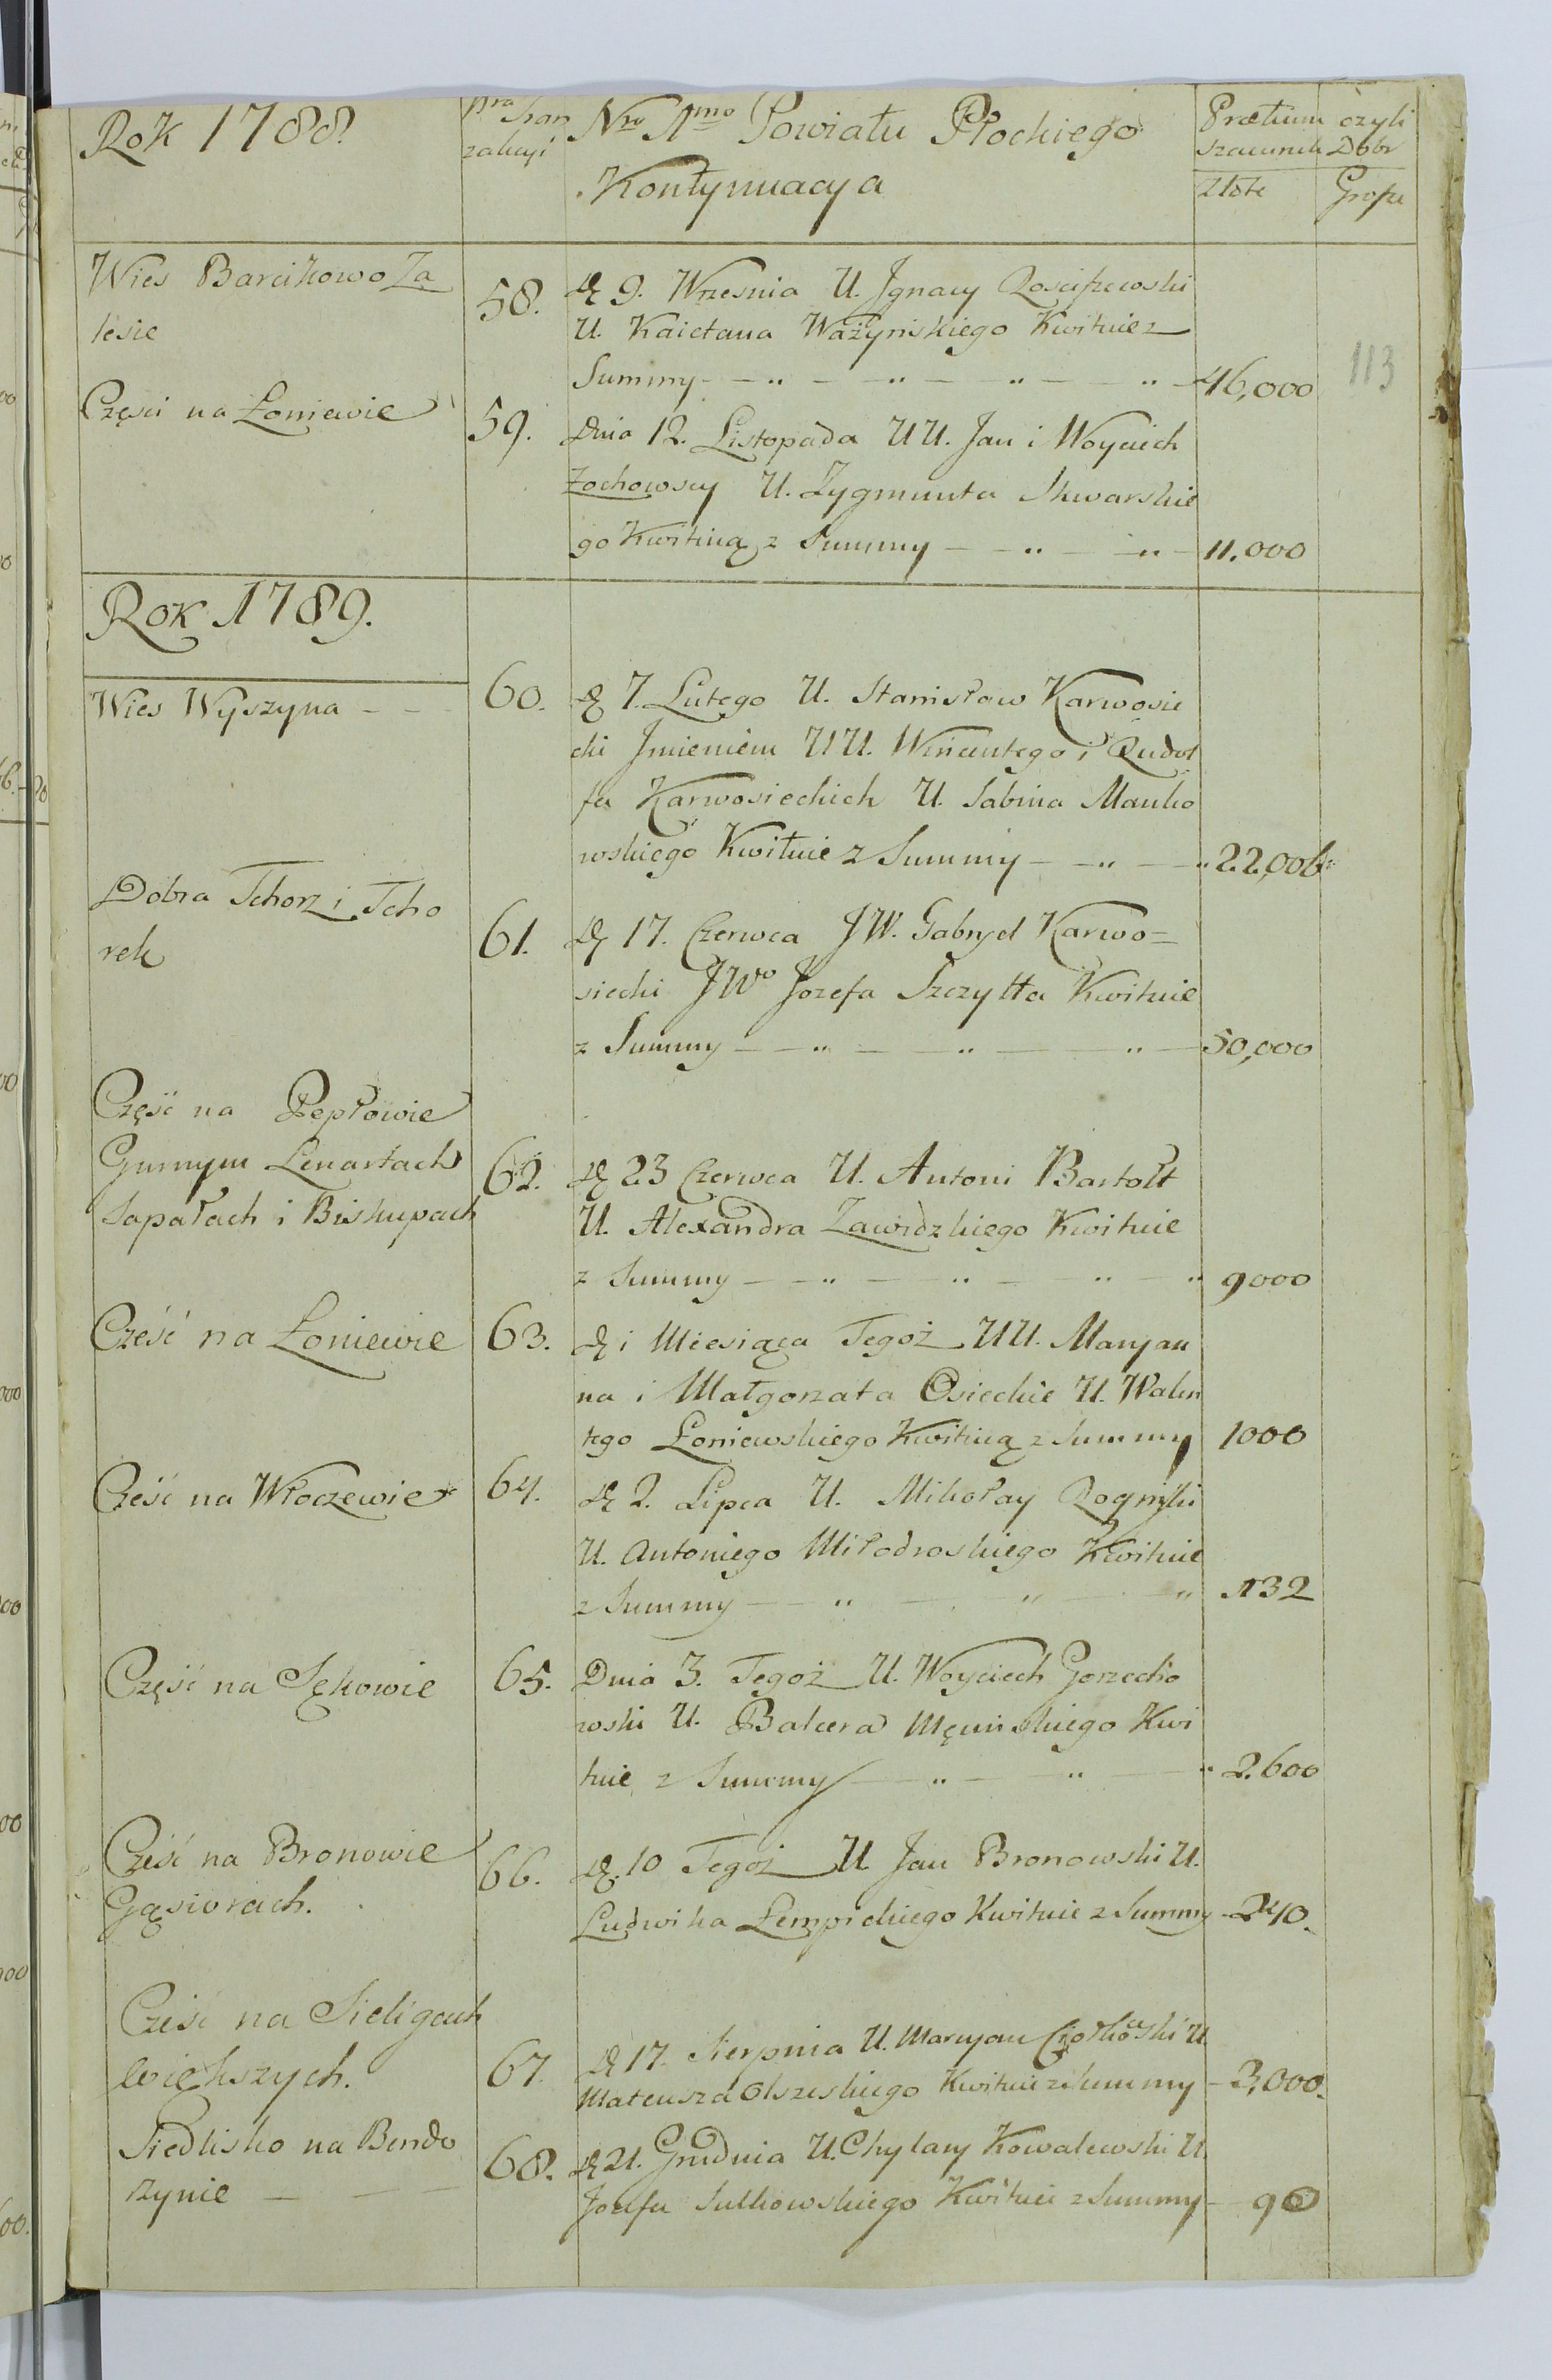 Rok 1788.
Nra Tran
zakcyi
Nro 1mo Powiatu Płockiego
Kontynuacya
Prætium czyli
szacunek Dobr
Złote
Grosze
113
Wies Barcikowo Za
lesie
58.
D. 9. Wrzesnia U. Jgnacy Rosciszewski
U. Kaietana Ważynskiego Kwituie z
Summy - - " - " - " - " -
46,000
Częsci na Łoniewie
59.
Dnia 12. Listopada UU. Jan i Woyciech
Żochowscy U. Zygmunta Skwarskie
go Kwituią z Summy - - " - " -
11.000
Rok 1789.
Wies Wyszyna - -
60.
D. 7. Lutego U. Stanisław Karwosie
cki Jmieniem UU. Wincentego i Rudol
fa Karwosieckich U. Sabina Manko
wskiego Kwituie z Summy - - " - "
22,006
Dobra Tchorz i Tcho
rek
61.
D. 17. Czerwca JW. Gabryel Karwo=
siecki JWo Jozefa Szczytta Kwituie
z Summy - - " - " - " -
50,000
Część na Pepłowie
Gurnym Lenartach
Sapałach i Biskupach
62.
D. 23 Czerwca U. Antoni Bartołt
U. Alexandra Zawidzkiego Kwituie
z Summy - - " - " - " - "
9000
Cześć na Łoniewie
63.
D. i Miesiąca Tegoż UU. Maryan
na i Małgorzata Osieckie U. Walen
tego Łoniewskiego Kwituią z Summy
1000
Cześć na Włoczewie
64.
D. 2. Lipca U. Mikołay Rogriski
U. Antoniego Miłodroskiego Kwituie
z Summy - - " - " - "
1132
Część na Sękowie
65.
Dnia 3. Tegoż U. Woyciech Gorzecho
wski U. Balcera Męcinskiego Kwi
tuie z Summy - " - " - "
2.600
Cześć na Bronowie
Gąsiorach.
66.
D. 10 Tegoż U. Jan Bronowski U.
Ludwika Łempickiego Kwituie z Summy
240.
Cześć na Sieligach
większych.
67.
D. 17. Sierpnia U. Maryan Ciołkowski U.
Mateusza Olszeskiego Kwituie z Summy -
3,000.
Siedlisko na Bendo
rzynie - - -
68.
D. 21. Grudnia U. Chylary Kowalewski U.
Jozefa Sulkowskiego Kwituie z Summy -
90